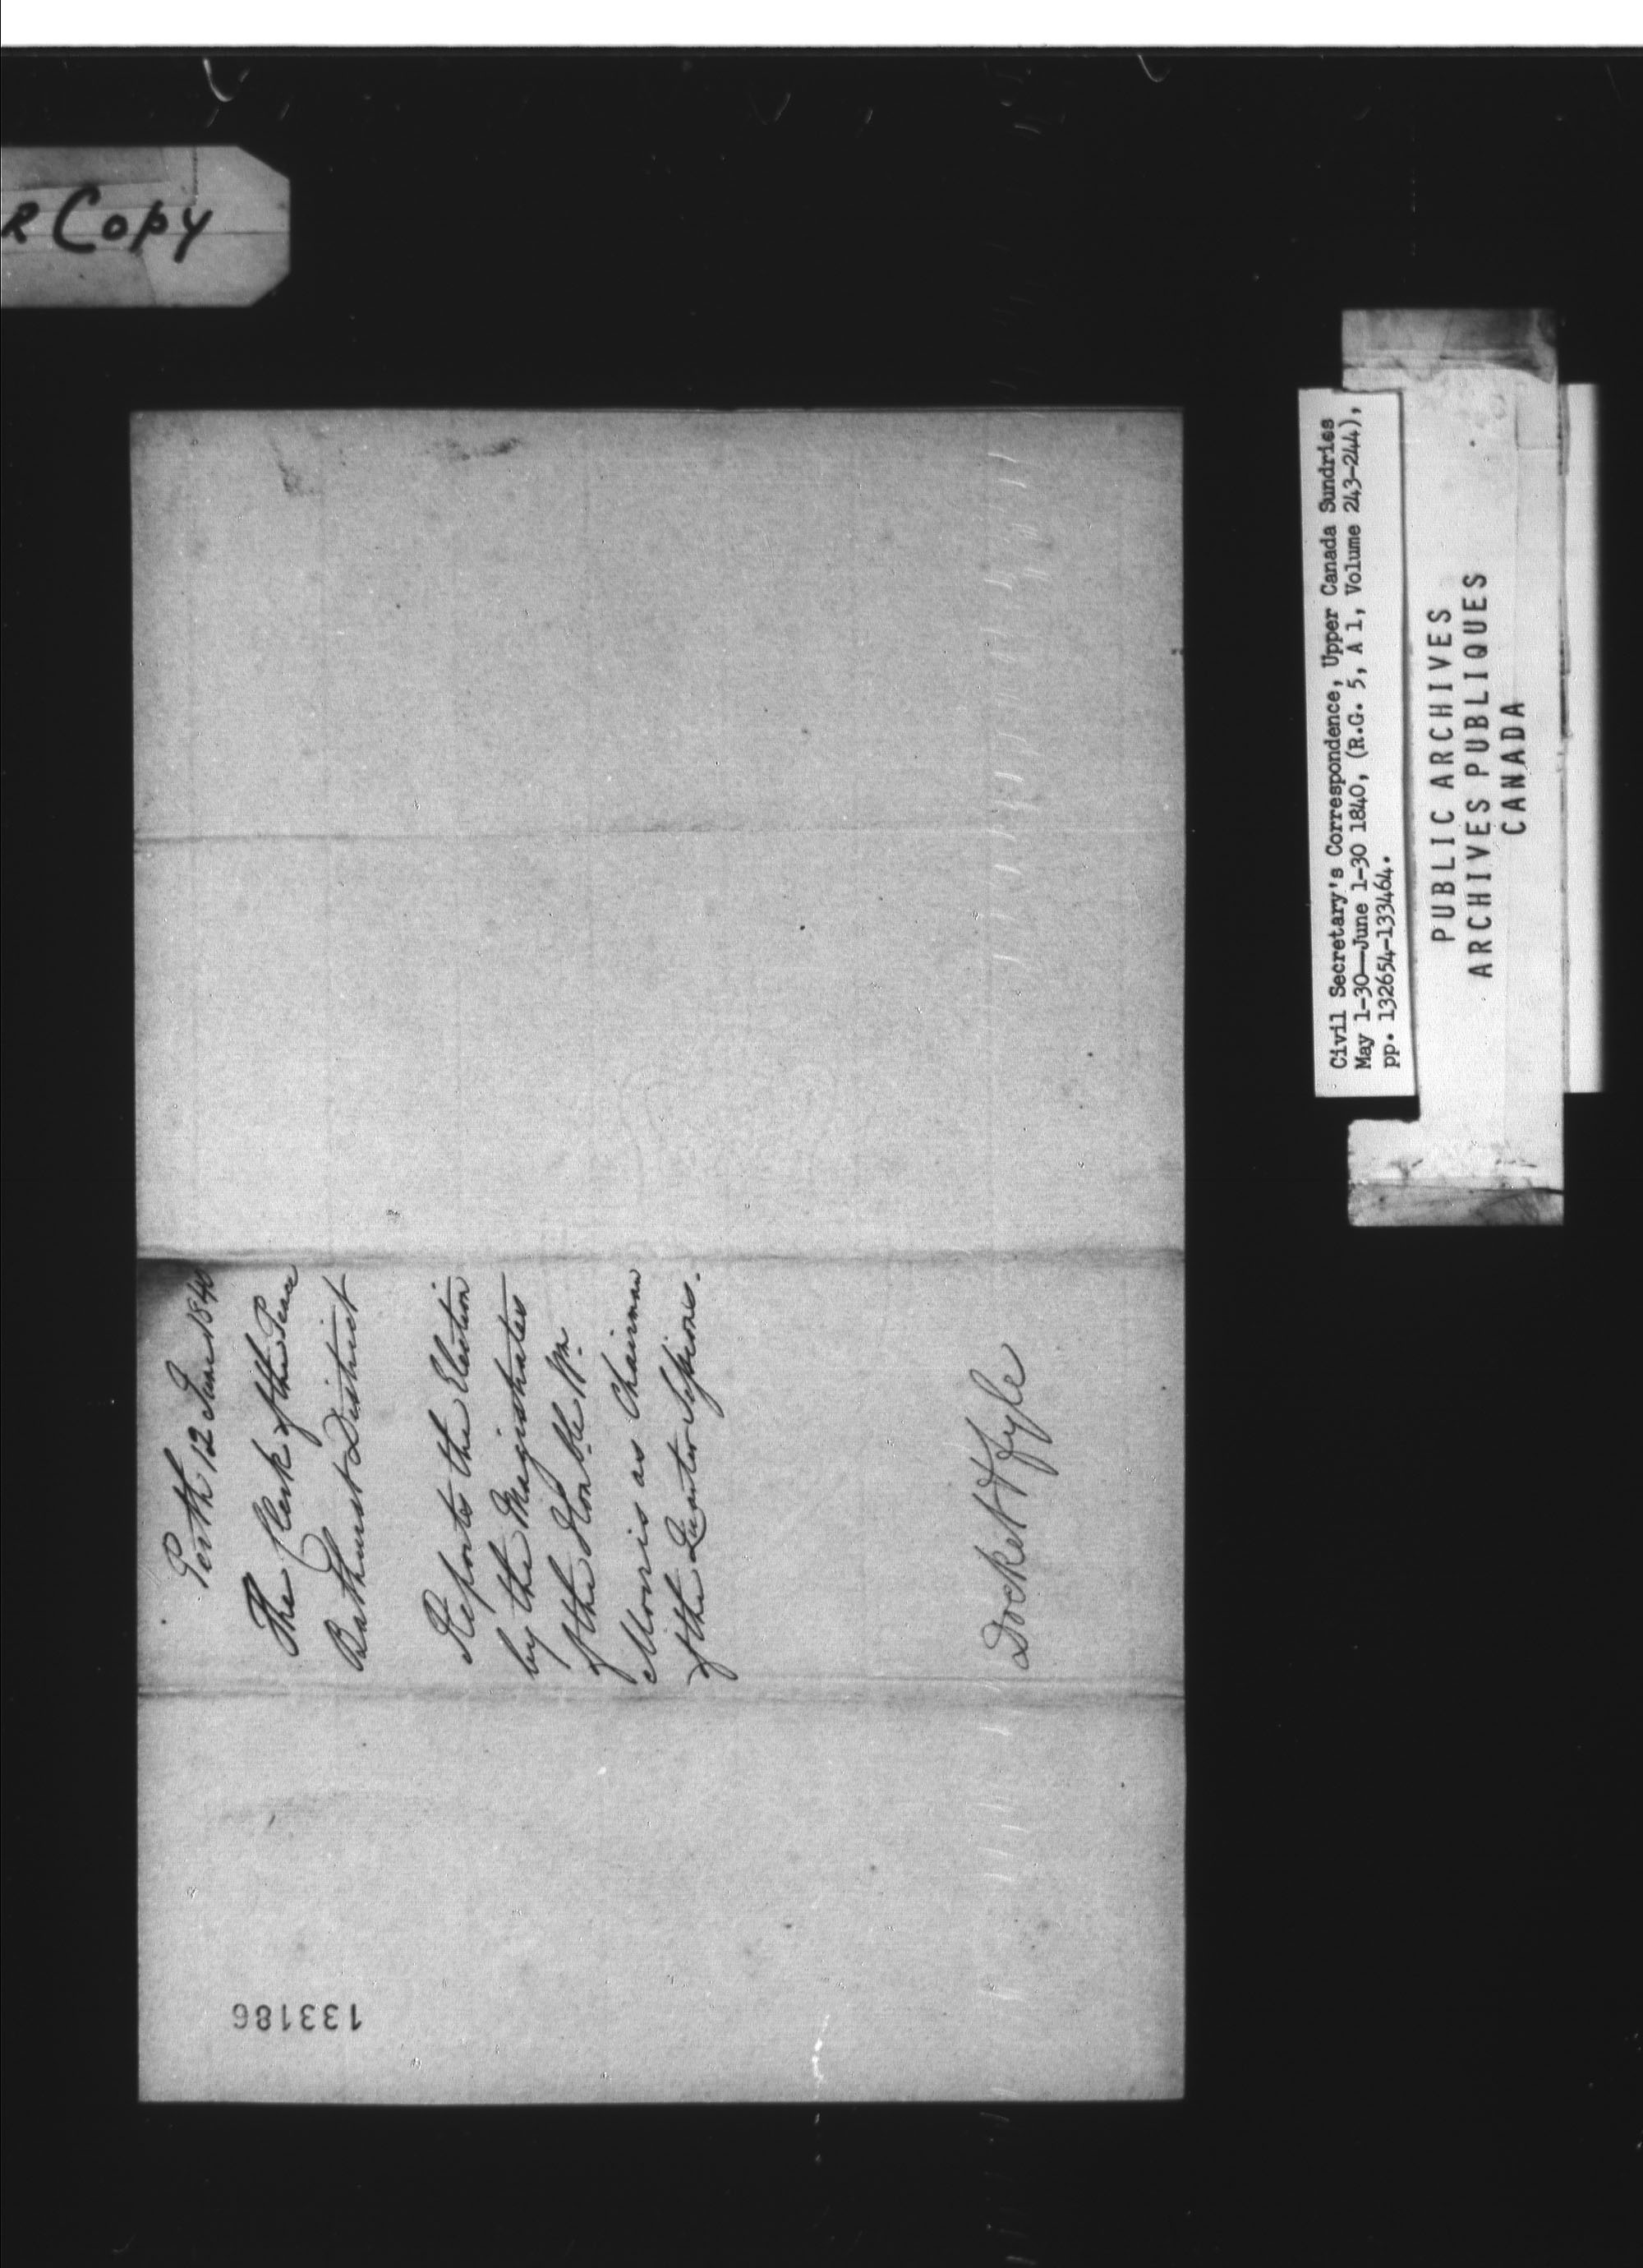 R Copy
Perth 12 June 1840
The Clerk of the Peace
Bathurst District
Reports the Election
by the Magistrates
of the Honble. Wm.
Morris as Chairman
of the Quarter Sessions.
Docket & Fyle
133186
Civil Secretary's Correspondence, Upper Canada Sundries
May 1-30—June 1-30 1840, (R.G. 5, A 1, Volume 243-244),
pp. 132654-133464.
PUBLIC ARCHIVES
ARCHIVES PUBLIQUES
CANADA